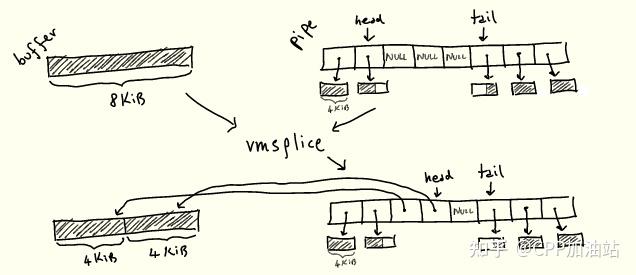 buffer
8 KiB
pipe
head
tail
NULL NULL NULL
4 KiB
vmsplice
head
tail
NULL
4 KiB 4 KiB
4 KiB
知乎 @CPP加油站